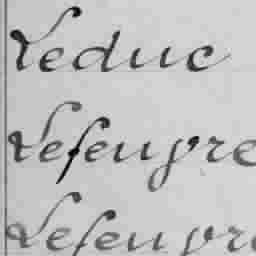 Leduc
Lefeuvre
Lefeuvre